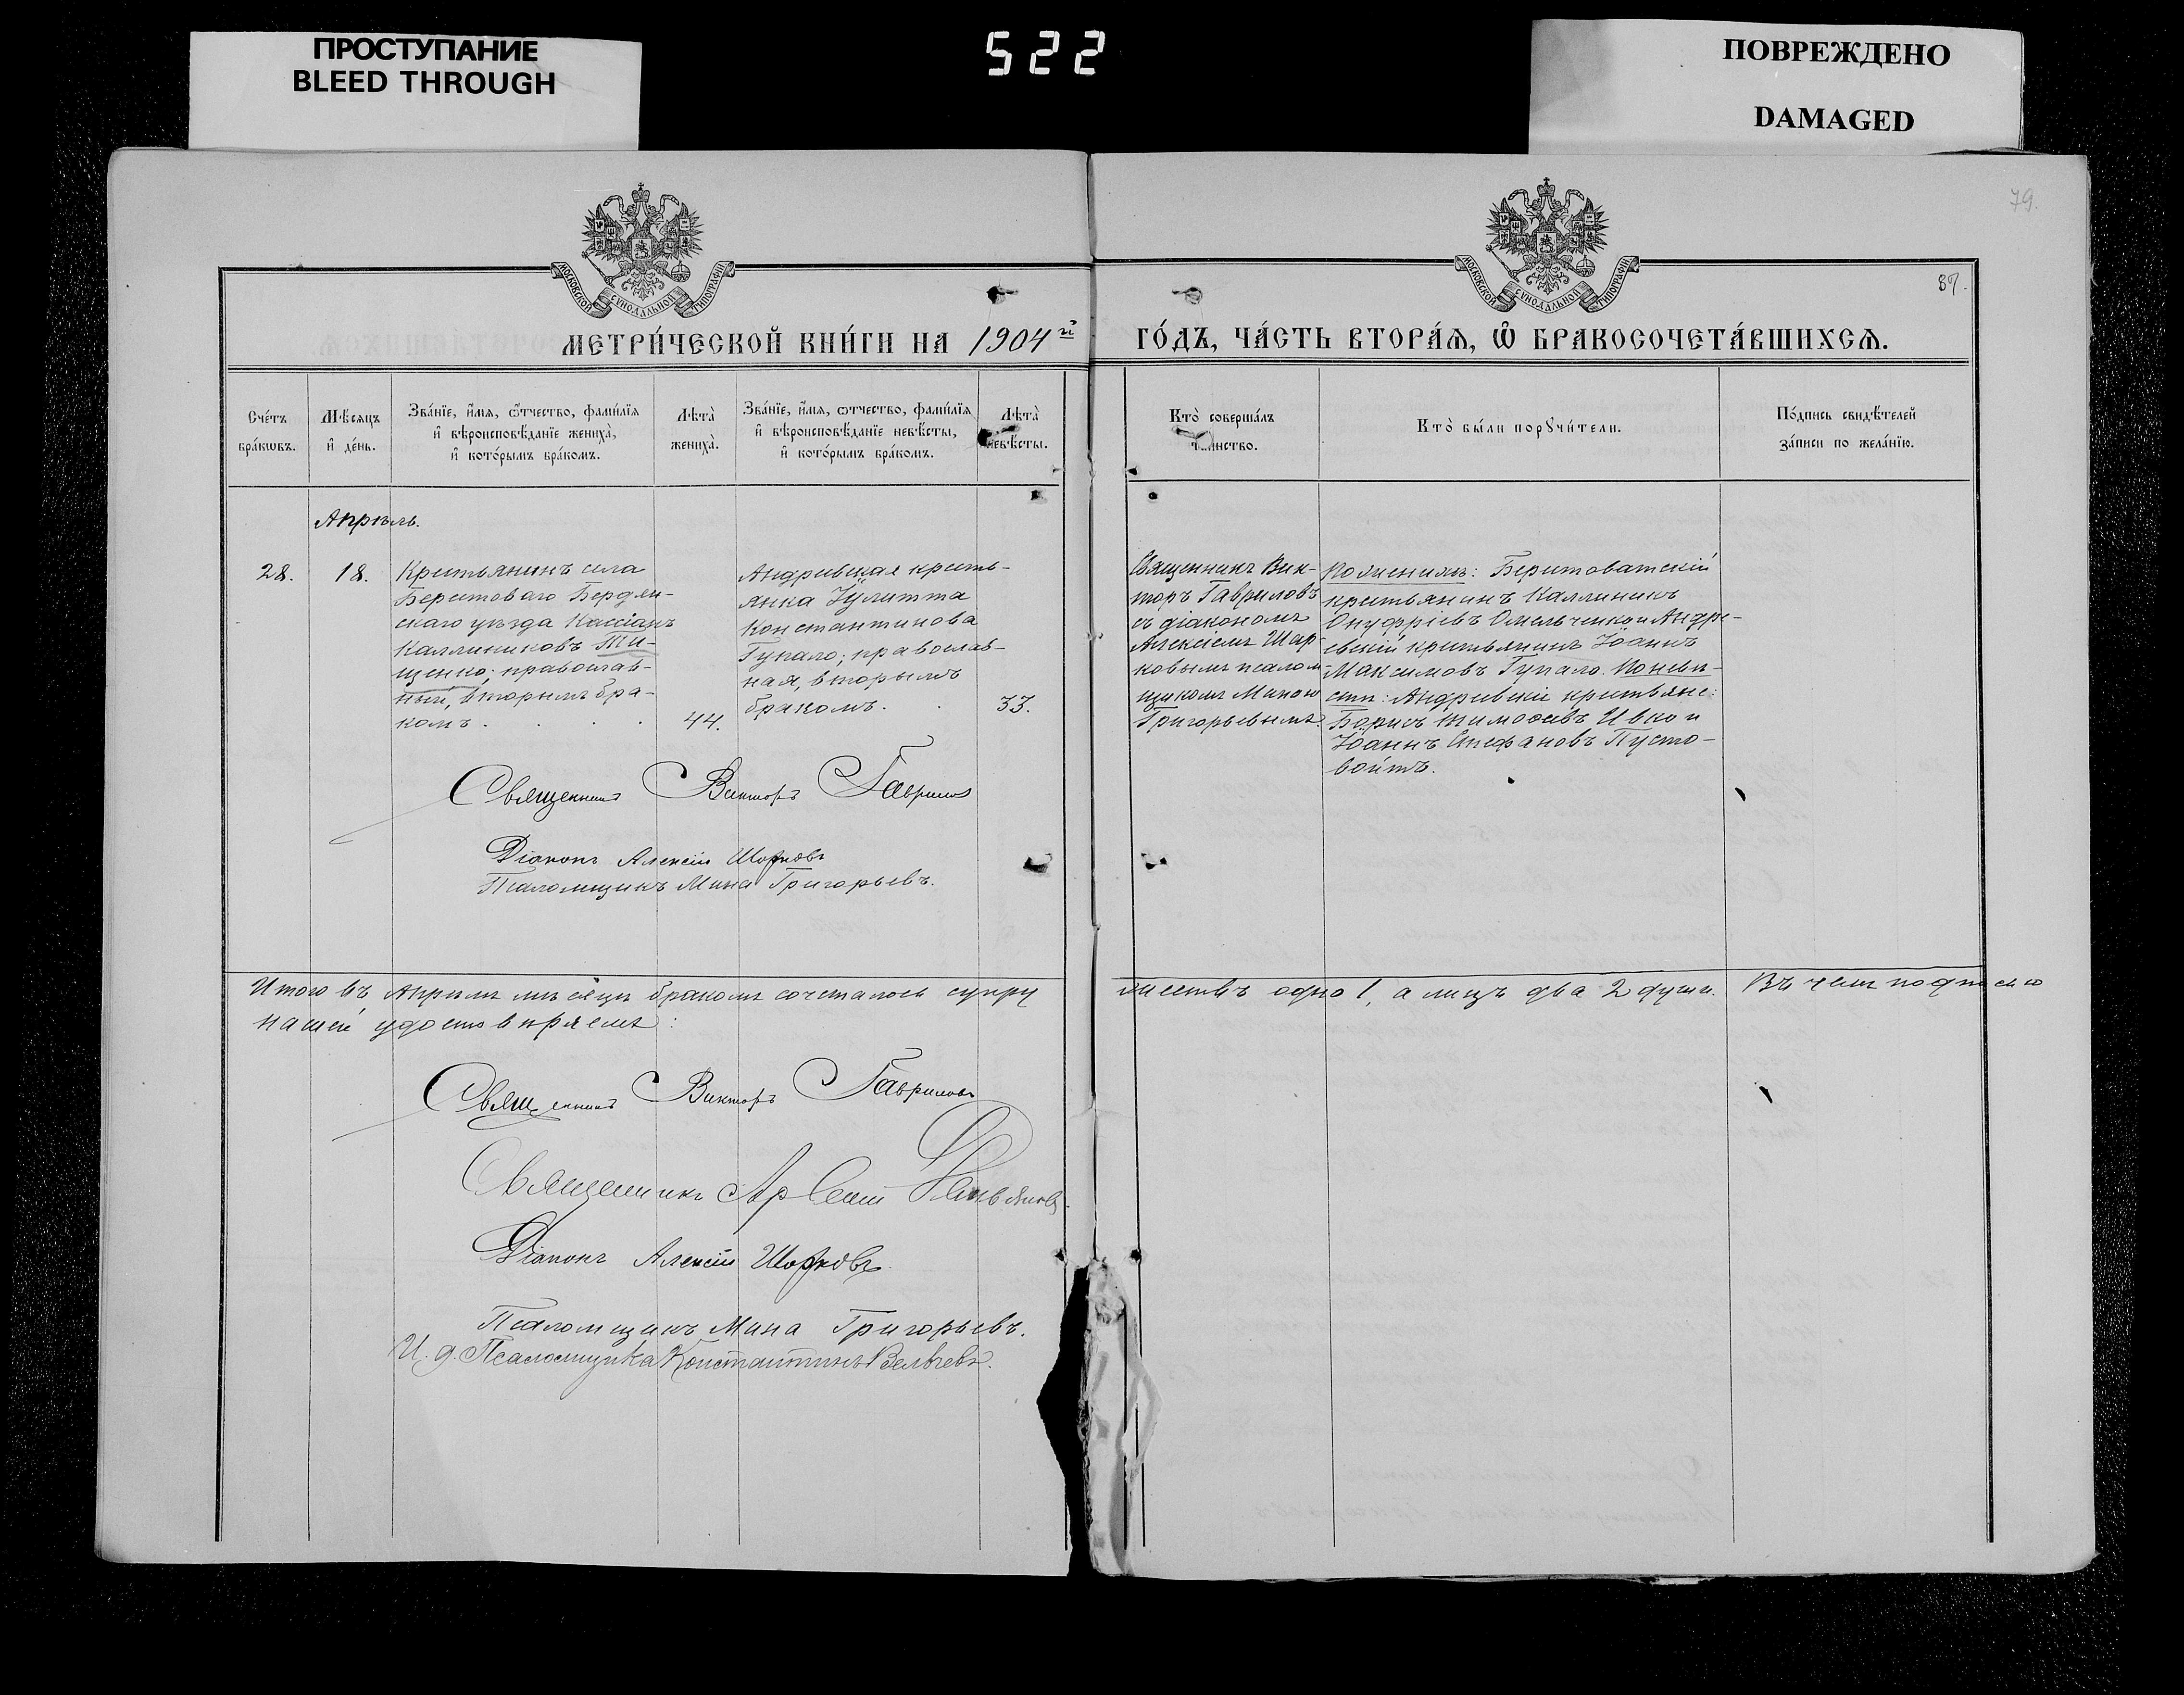 ПРОСТУПАНИЕ
BLEED THROUGH
522
ПОВРЕЖДЕНО
DAMAGED
79.
87.
МОСКОВСКОЙ СѴНОДАЛЬНОЙ ТИПОГРАФІИ
МОСКОВСКОЙ СѴНОДАЛЬНОЙ ТИПОГРАФІИ
МЕТРИ́ЧЕСКОЙ КНИ́ГИ НА 1904й ГО́ДЪ, ЧА́СТЬ ВТОРА́Ѧ, Ѽ БРАКОСОЧЕТА́ВШИХСѦ.
Сче́тъ
бра́кѡвъ.
Мѣ́сѧцъ
и҆ де́нь.
Зва́нїе, и҆́мѧ, ѻ҆́тчество, фами́лїѧ
и҆ вѣроисповѣ́данїе жениха̀,
и҆ кото́рымъ бра́комъ.
Лѣта̀
жениха̀.
Зва́нїе, и҆́мѧ, ѻ҆́тчество, фами́лїѧ
и҆ вѣроисповѣ́данїе невѣ́сты,
и҆ кото́рымъ бра́комъ.
Лѣта̀
невѣ́сты.
Кто̀ соверша́лъ
таинство.
Кто̀ бы́ли порꙋчи́тели.
По́дпись свидѣ́телей
за́писи по жела́нїю.
Апрѣль.
28.
18.
Крестьянинъ села
Берестоваго Бердян-
скаго уѣзда Кассіанъ
Каллиниковъ Ти-
щенко; православ-
ный, вторымъ бра-
комъ . . . .
44.
Андреевская кресть-
янка Іулитта
Константинова
Гупало; православ-
ная, вторымъ
бракомъ. .
33.
Священникъ Вик-
торъ Гавриловъ
съ діакономъ
Алексіемъ Шар-
ковымъ псалом-
щикомъ Миною
Григорьевымъ.
По женихѣ: Берестоватскій
крестьянинъ Каллиникъ
Онуфріевъ Омельченко и Андре-
евскій крестьянинъ Іоаннъ
Максимовъ Гупало. По невѣ-
стѣ: Андреевскіе крестьяне:
Борисъ Тимоѳеевъ Ивко и
Іоаннъ Стефановъ Пусто-
войтъ.
Священникъ Викторъ Гавриловъ
Діаконъ Алексій Шарковъ
Псаломщикъ Мина Григорьевъ.
Итого въ Апрѣлѣ мѣсяцѣ бракомъ сочеталось супру
жествъ одно 1, а лицъ два 2 души. Въ чемъ подписью
нашей удостовѣряемъ:
Священникъ Викторъ Гавриловъ
Священникъ
Діаконъ Алексій Шарковъ
Псаломщикъ Мина Григорьевъ.
И. д. Псаломщика Константинъ